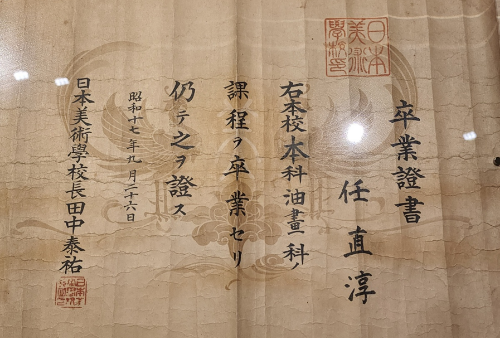 日本美術學校印
卒業證書
任直淳
右本校本科油畫科ノ
課程ヲ卒業セリ
仍テ之ヲ證ス
昭和十七年九月二十六日
日本美術學校長田中泰祐